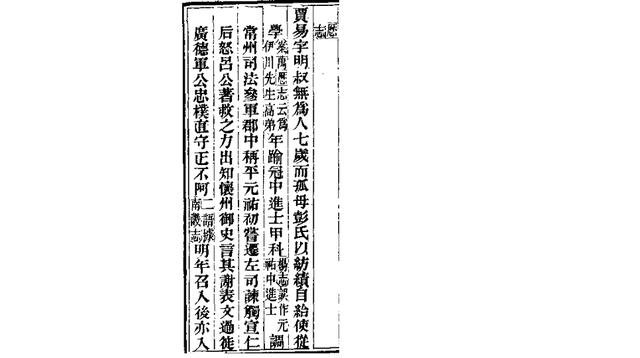 志
賈易字明叔無爲人七歲而孤母彭氏以紡績自給使從
學案萬歷志云爲伊川先生高弟年踰冠中進士甲科楊志誤作元祐中進士調
常州司法參軍郡中稱平元祐初嘗遷左司諫觸宣仁
后怒呂公著救之力出知懷州御史言其謝表文過徙
廣德軍公忠樸直守正不阿二語據南畿志明年召入後亦入